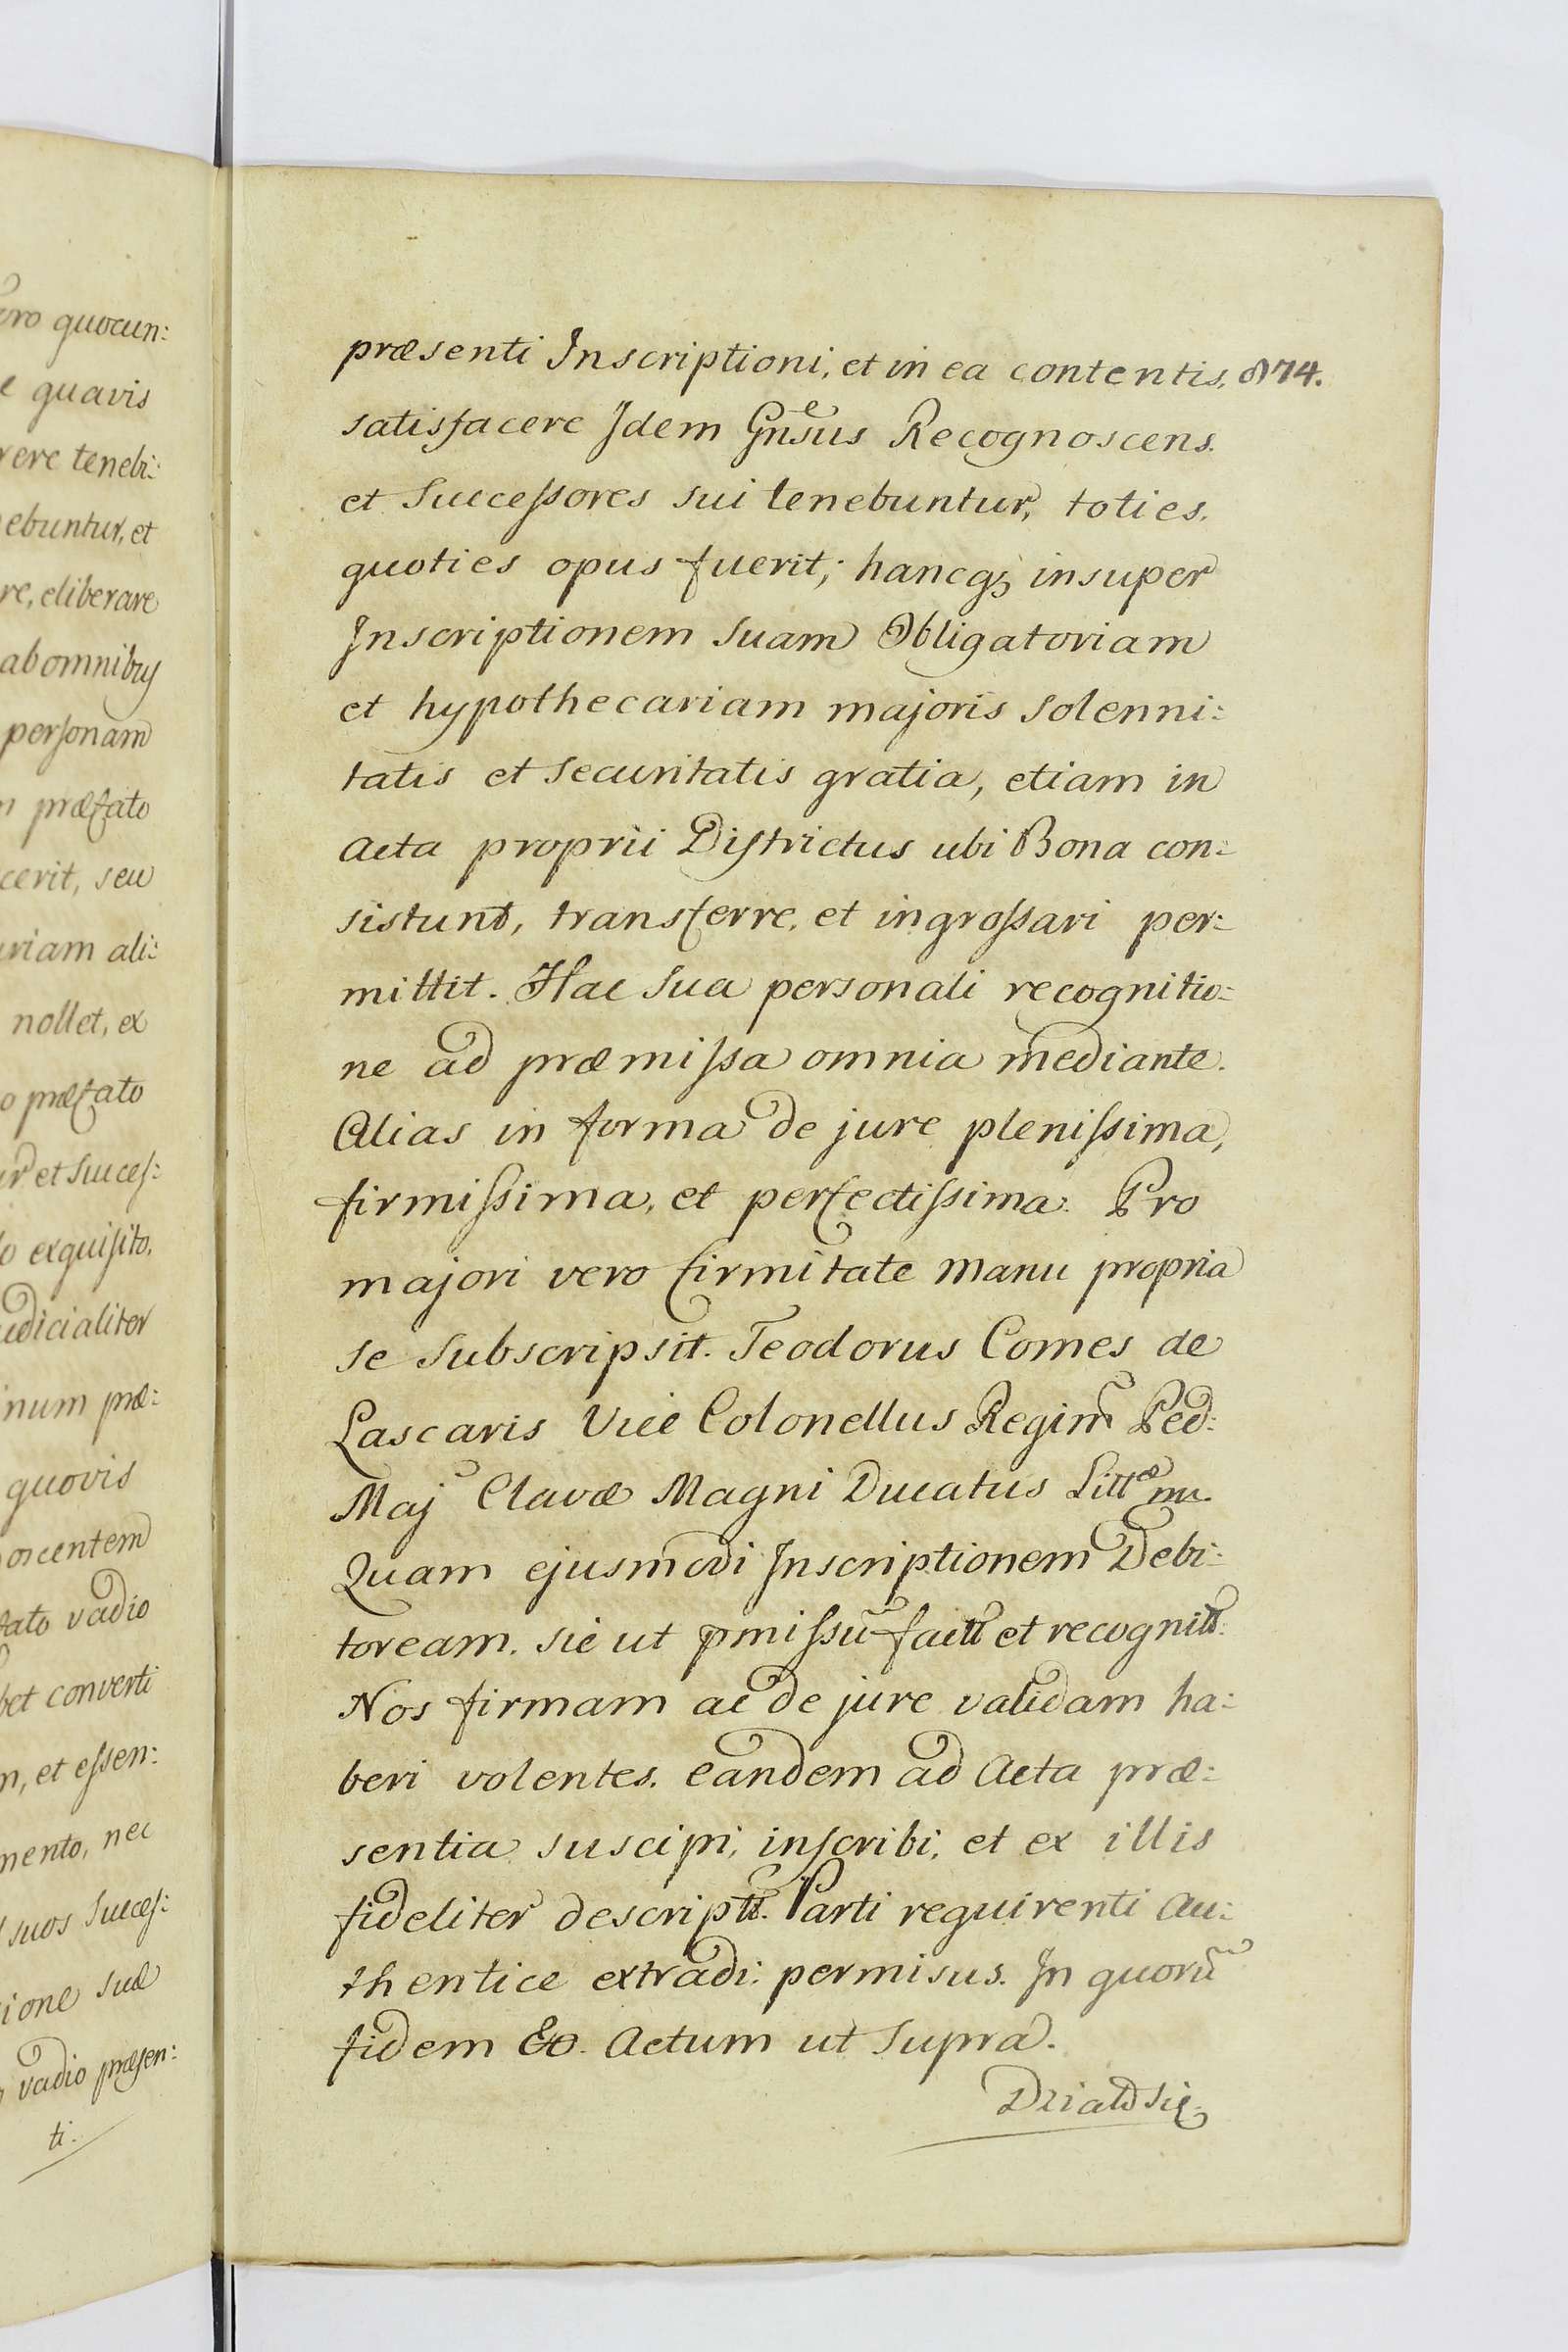 oro quocun:
e quavis
rere tenebi:
ebuntur, et
re, eliberare
ab omnibus
personam
m præfato
cerit, seu
uriam ali:
nollet, ex
o præfato
ur et Succes:
o exquisito.
udicialiter
inum præ:
quovis
oscentem
fato vadio
bet converti
m, et essen:
mento, nec
suos Succes:
ione suæ
vadio præsen:
ti.
874.
præsenti Inscriptioni, et in ea contentis,
satisfacere Idem Gnsus Recognoscens.
et Successores sui tenebuntur, toties.
quoties opus fuerit; hancq3 insuper
Inscriptionem Suam Obligatoriam
et hypothecariam majoris Solenni:
tatis et Securitatis gratia, etiam in
Acta proprii Districtus ubi Bona con:
sistunt, transferre, et ingrossari per:
mittit. Hac Sua personali recognitio:
ne ad præmissa omnia mediante.
Alias in forma de jure plenissima,
firmissima, et perfectissima. Pro
majori vero firmitate manu propria
se Subscripsit. Teodorus Comes de
Lascaris Vice Colonellus Regim̃ Ped:
Maj̃ Clavæ Magni Ducatus Littæ mp.
Quam ejusmodi Inscriptionem Debi:
toream. sic ut pmissũ factt et recognitt:
Nos firmam ac de jure validam ha:
beri volentes. eandem ad Acta præ:
sentia suscipi, inscribi, et ex illis
fideliter descriptt. Parti requirenti au:
thentice extradi: permisus. In quorũ
fidem &c. Actum ut Supra.